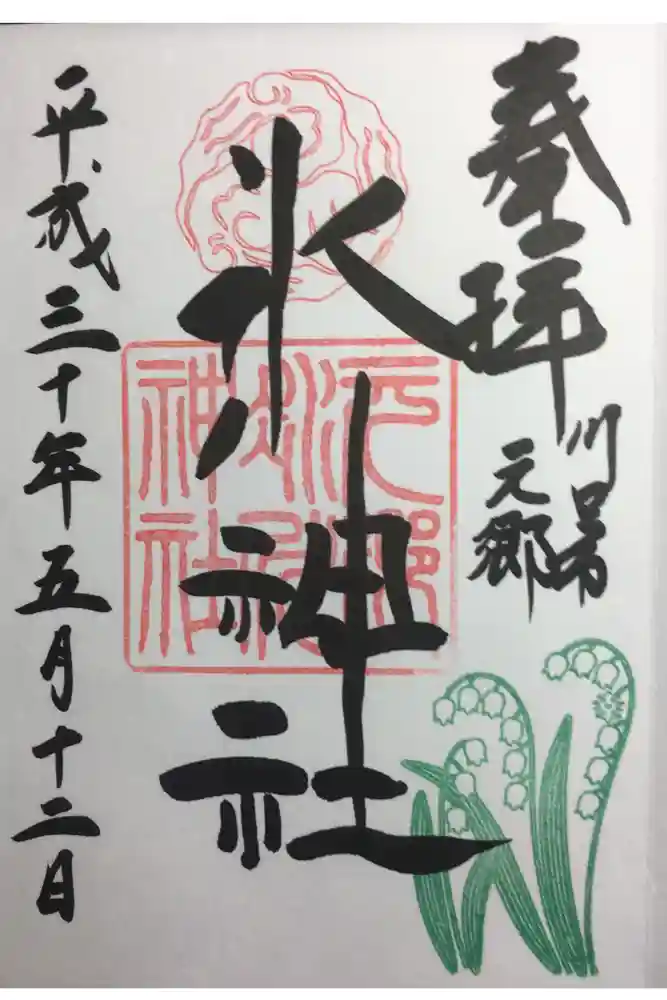 奉拝
川口市
元郷
氷神社
平成三十年五月十二日
元郷
氷川
神社